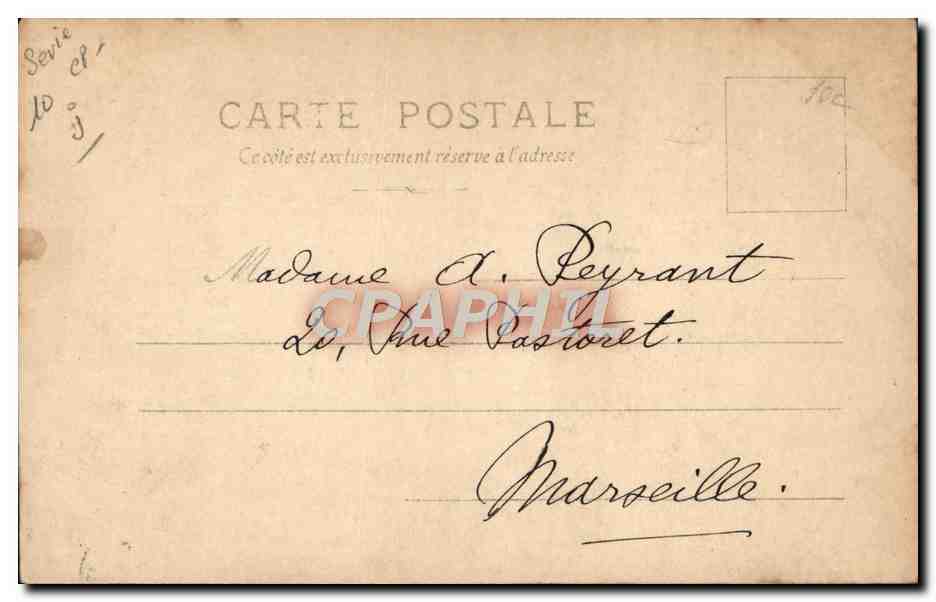 Serie CP.
10
10c
CARTE POSTALE
Ce côté est exclusivement réservé à l'adresse
Madame A. Peyrant
CPAPHIL
20, Rue Pastoret.
Marseille.